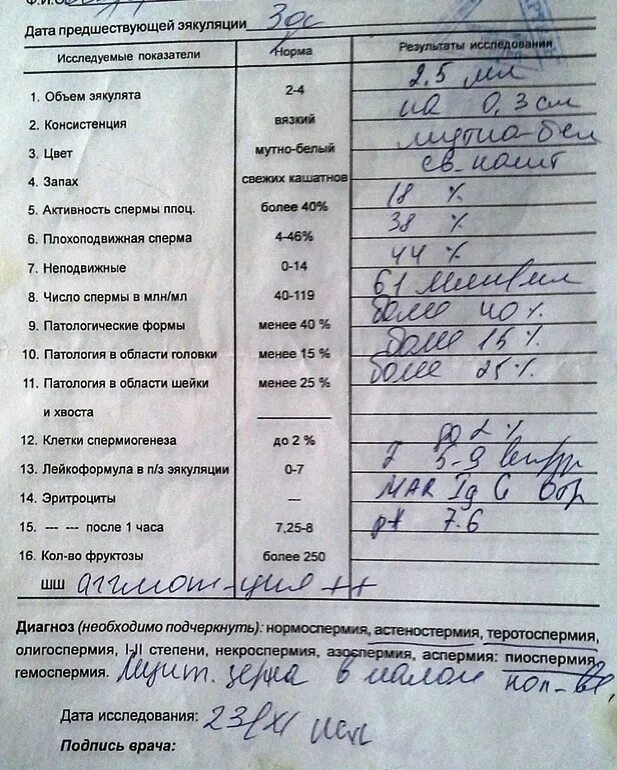 Дата предшествующей эякуляции 3 дс
Исследуемые показатели Норма Результаты исследования
1. Объем эякулята 2-4 2.5 мл
2. Консистенция вязкий на 0,3 см
3. Цвет мутно-белый мутно-бел
4. Запах свежих кашатнов св. кашт
5. Активность спермы ппоц. более 40% 18 %
6. Плохоподвижная сперма 4-46% 38 %
7. Неподвижные 0-14 44 %
8. Число спермы в млн/мл 40-119 61 млн/мл
9. Патологические формы менее 40 % более 40 %
10. Патология в области головки менее 15 % более 15 %
11. Патология в области шейки менее 25 % более 25 %
и хвоста
12. Клетки спермиогенеза до 2 % до 2 %
13. Лейкоформула в п/з эякуляции 0-7 5-9
14. Эритроциты --- MAR Ig G Отр
15. --- --- после 1 часа 7,25-8 pH 7.6
16. Кол-во фруктозы более 250
ШШ ++
Диагноз (необходимо подчеркнуть): нормоспермия, астеностермия, теротоспермия,
олигоспермия, I-II степени, некроспермия, азоспермия, аспермия: пиоспермия,
гемоспермия. Лецит. зерна в малом кол-ве,
Дата исследования: 23/XI
Подпись врача: